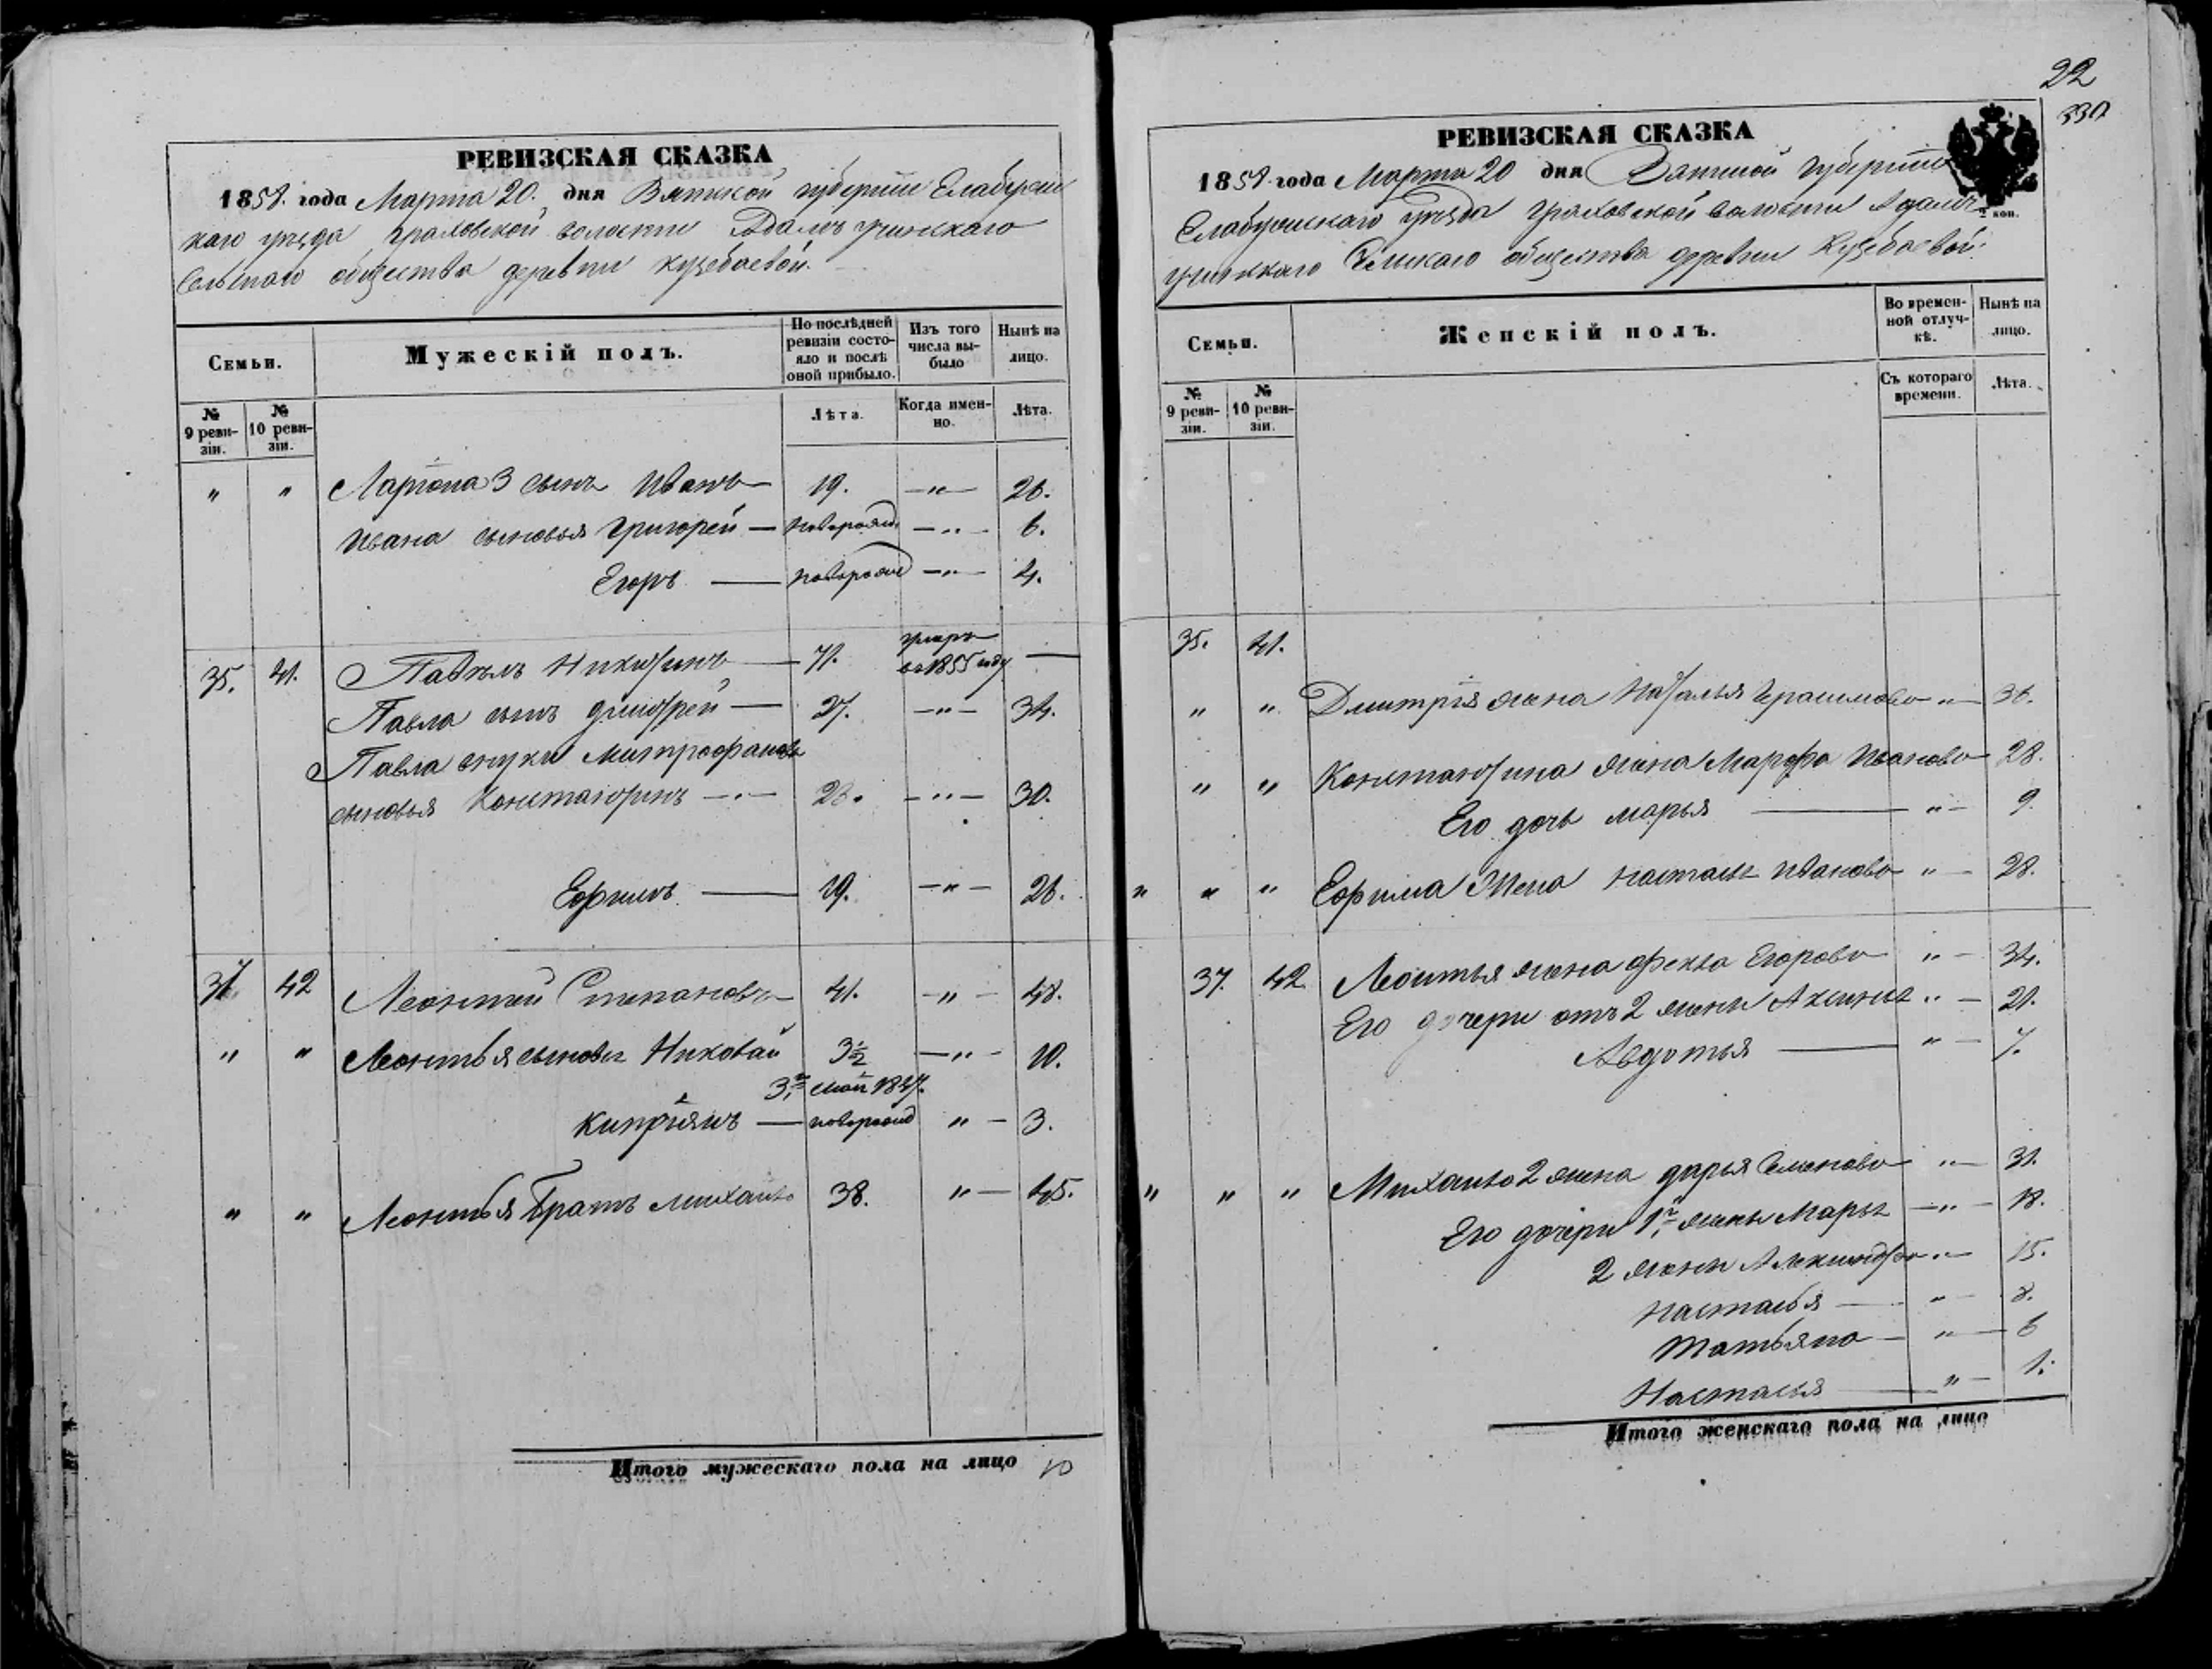 РЕВИЗСКАЯ СКАЗКА
1858. года Марта 20. дня Вятской губернии Елабужс
каго уезда Граховской волости Адамъ учинскаго
Сельскаго общества деревни Кузебаевой.
Семьи.
Мужескій полъ.
По послѣдней ревизіи состо-
яло и послѣ
оной прибыло.
Изъ того
числа вы-
было
Нынѣ на
лицо.
№
9 реви-
зіи.
№
10 реви-
зіи.
Лѣта.
Когда имен-
но.
Лѣта.
" " Лариона 3 сынъ Иванъ 19. — " — 26.
Ивана сыновья Григорей — новорожд — " — 6.
Егоръ — новорожд — " — 4.
35. 41. Павелъ Никитинъ — 71. умеръ въ 1855 году —
Павла сынъ Дмитрей — 27. — " — 34.
Павла внуки Митрофановы
сыновья Константинъ — " — 23. — " — 30.
Ефимъ — 19. — " — 26.
37 42 Леонтей Степановъ 41. — " — 48.
" " Леонтья сыновья Николай 3½ — " — 10.
3. май 1847.
Кипріянъ — новорожд " — 3.
" " Леонтья Братъ Михайло 38. " — 45.
Итого мужескаго пола на лицо 10
22
330
РЕВИЗСКАЯ СКАЗКА
1858. года Марта 20 дня Вятской губерніи
2 коп.
Елабужскаго уезда Граховской волости Адамъ
учинскаго Сельскаго общества деревни Кузебаевой.
Семьи.
Женскій полъ.
Во времен-
ной отлуч-
кѣ.
Нынѣ на
лицо.
№
9 реви-
зіи.
№
10 реви-
зіи.
Съ котораго
времени.
Лѣта.
35. 41.
" " Дмитрія жена Наталья Герасимова " — 36.
" " Константина жена Марфа Иванова — 28.
Его дочь Марья — " — 9.
" " " Ефима Жена Настасья Иванова " — 28.
37. 42 Леонтья жена Фекла Егорова " — 34.
Его дочери отъ 2 жены Аксинья " — 21.
Авдотья — " — 7.
" " " Михайло 2 жена Дарья Семенова " — 31.
Его дочери 1й жены Марья — " — 18.
2 жены Александра " — 15.
Настасья — " — 8.
Татьяна — " — 6
Настасья — " — 1.
Итого женскаго пола на лицо